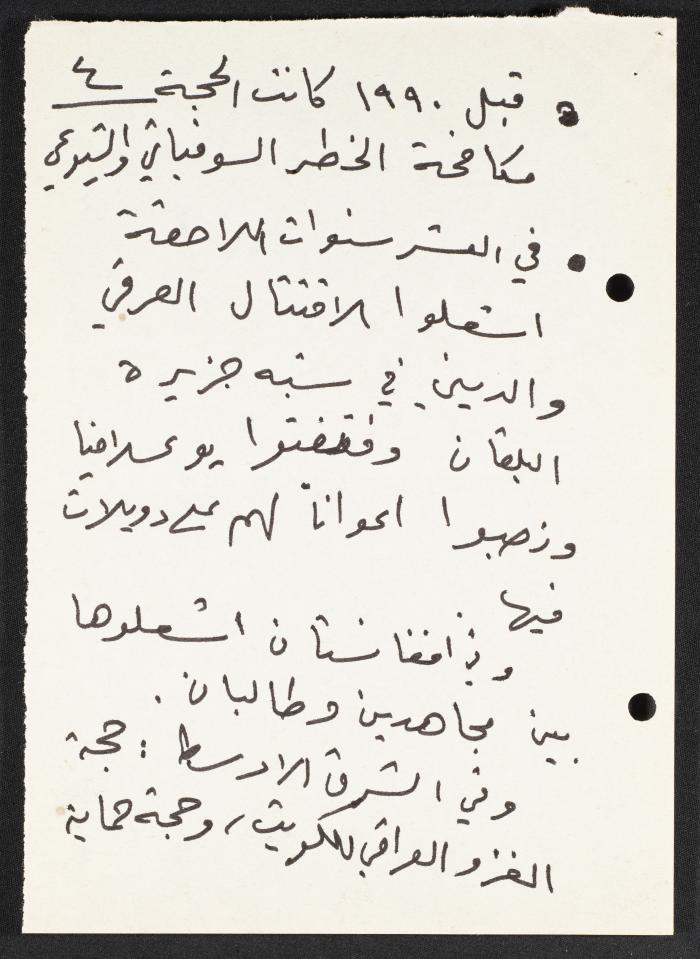 ٤
• قبل ١٩٩٠ كانت الحجة
مكافحة الخطر السوفياتي والشيوعي
• في العشر سنوات اللاحقة
اشعلوا الاقتتال العرقي
والديني في شبه جزيرة
البلقان وفتفتوا يوغسلافيا
ونصبوا اعواناً لهم على دويلات
فيها
وفي افغانستان اشعلوها
بين مجاهدين وطالبان.
وفي الشرق الاوسط: حجة
الغزو العراقي للكويت، وحجة حماية